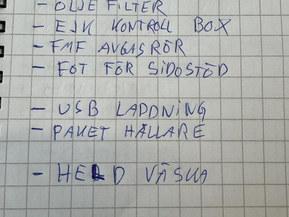 - OLJE FILTER
- EJK KONTROLL BOX
- FMF AVGASRÖR
- FOT FÖR SIDOSTÖD
- USB LADDNING
- PAKET HÅLLARE
- HELD VÄSKA